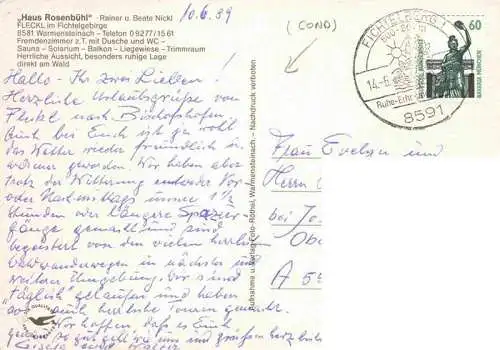 „Haus Rosenbühl" · Rainer u. Beate Nickl
FLECKL im Fichtelgebirge
8581 Warmensteinach – Telefon 09277/1561
Fremdenzimmer z.T. mit Dusche und WC –
Sauna – Solarium – Balkon – Liegewiese – Trimmraum
Herrliche Aussicht, besonders ruhige Lage
direkt am Wald
10.6.89
(COND)
Hallo – Ihr zwei Lieben!
Herzliche Urlaubsgrüße von
Fleckl nach Bischofshofen
Auch bei Euch ist ja wohl
das Wetter wieder freundlich und
wärmer geworden. Wir haben aber
trotz der Witterung entweder Vor-
oder Nachmittags immer 1 1/2
Stunden oder längere Spazier-
gänge gemacht und sind
begeistert von den vielen herrlichen
Waldwanderwegen in nächster und
weiterer Umgebung. Wir sind
täglich gelaufen und haben
auch herrliche Touren gemacht.
Wir hoffen, daß es Euch
so gut geht wie uns und grüße herzlich
Gisela und
Aufnahme u. Verlag Foto-Rödel, Warmensteinach – Nachdruck verboten
FICHTELBERG 1
14.-6.
Ruhe-Erho
8591
60
BAVARIA MÜNCHEN
Frau Evelyn und
Herrn
bei Jo
Obe
A 55